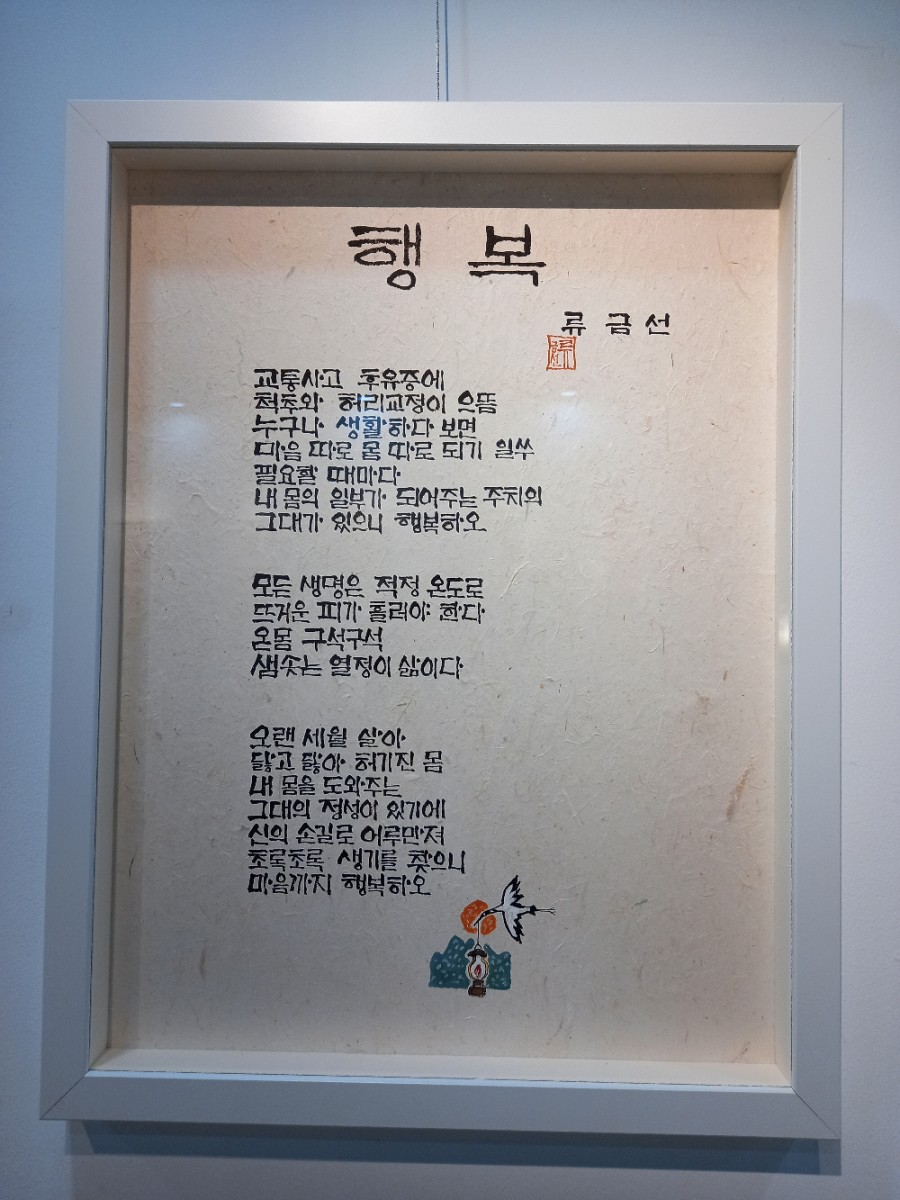 행 복
류 금 선
교통사고 후유증에
척추와 허리교정이 으뜸
누구나 생활하다 보면
마음 따로 몸 따로 되기 일쑤
필요할 때마다
내 몸의 일부가 되어주는 주치의
그대가 있으니 행복하오
모든 생명은 적정 온도로
뜨거운 피가 흘러야 한다
온몸 구석구석
샘솟는 열정이 삶이다
오랜 세월 살아
닳고 닳아 허기진 몸
내 몸을 도와주는
그대의 정성이 있기에
신의 손길로 어루만져
초록초록 생기를 찾으니
마음까지 행복하오